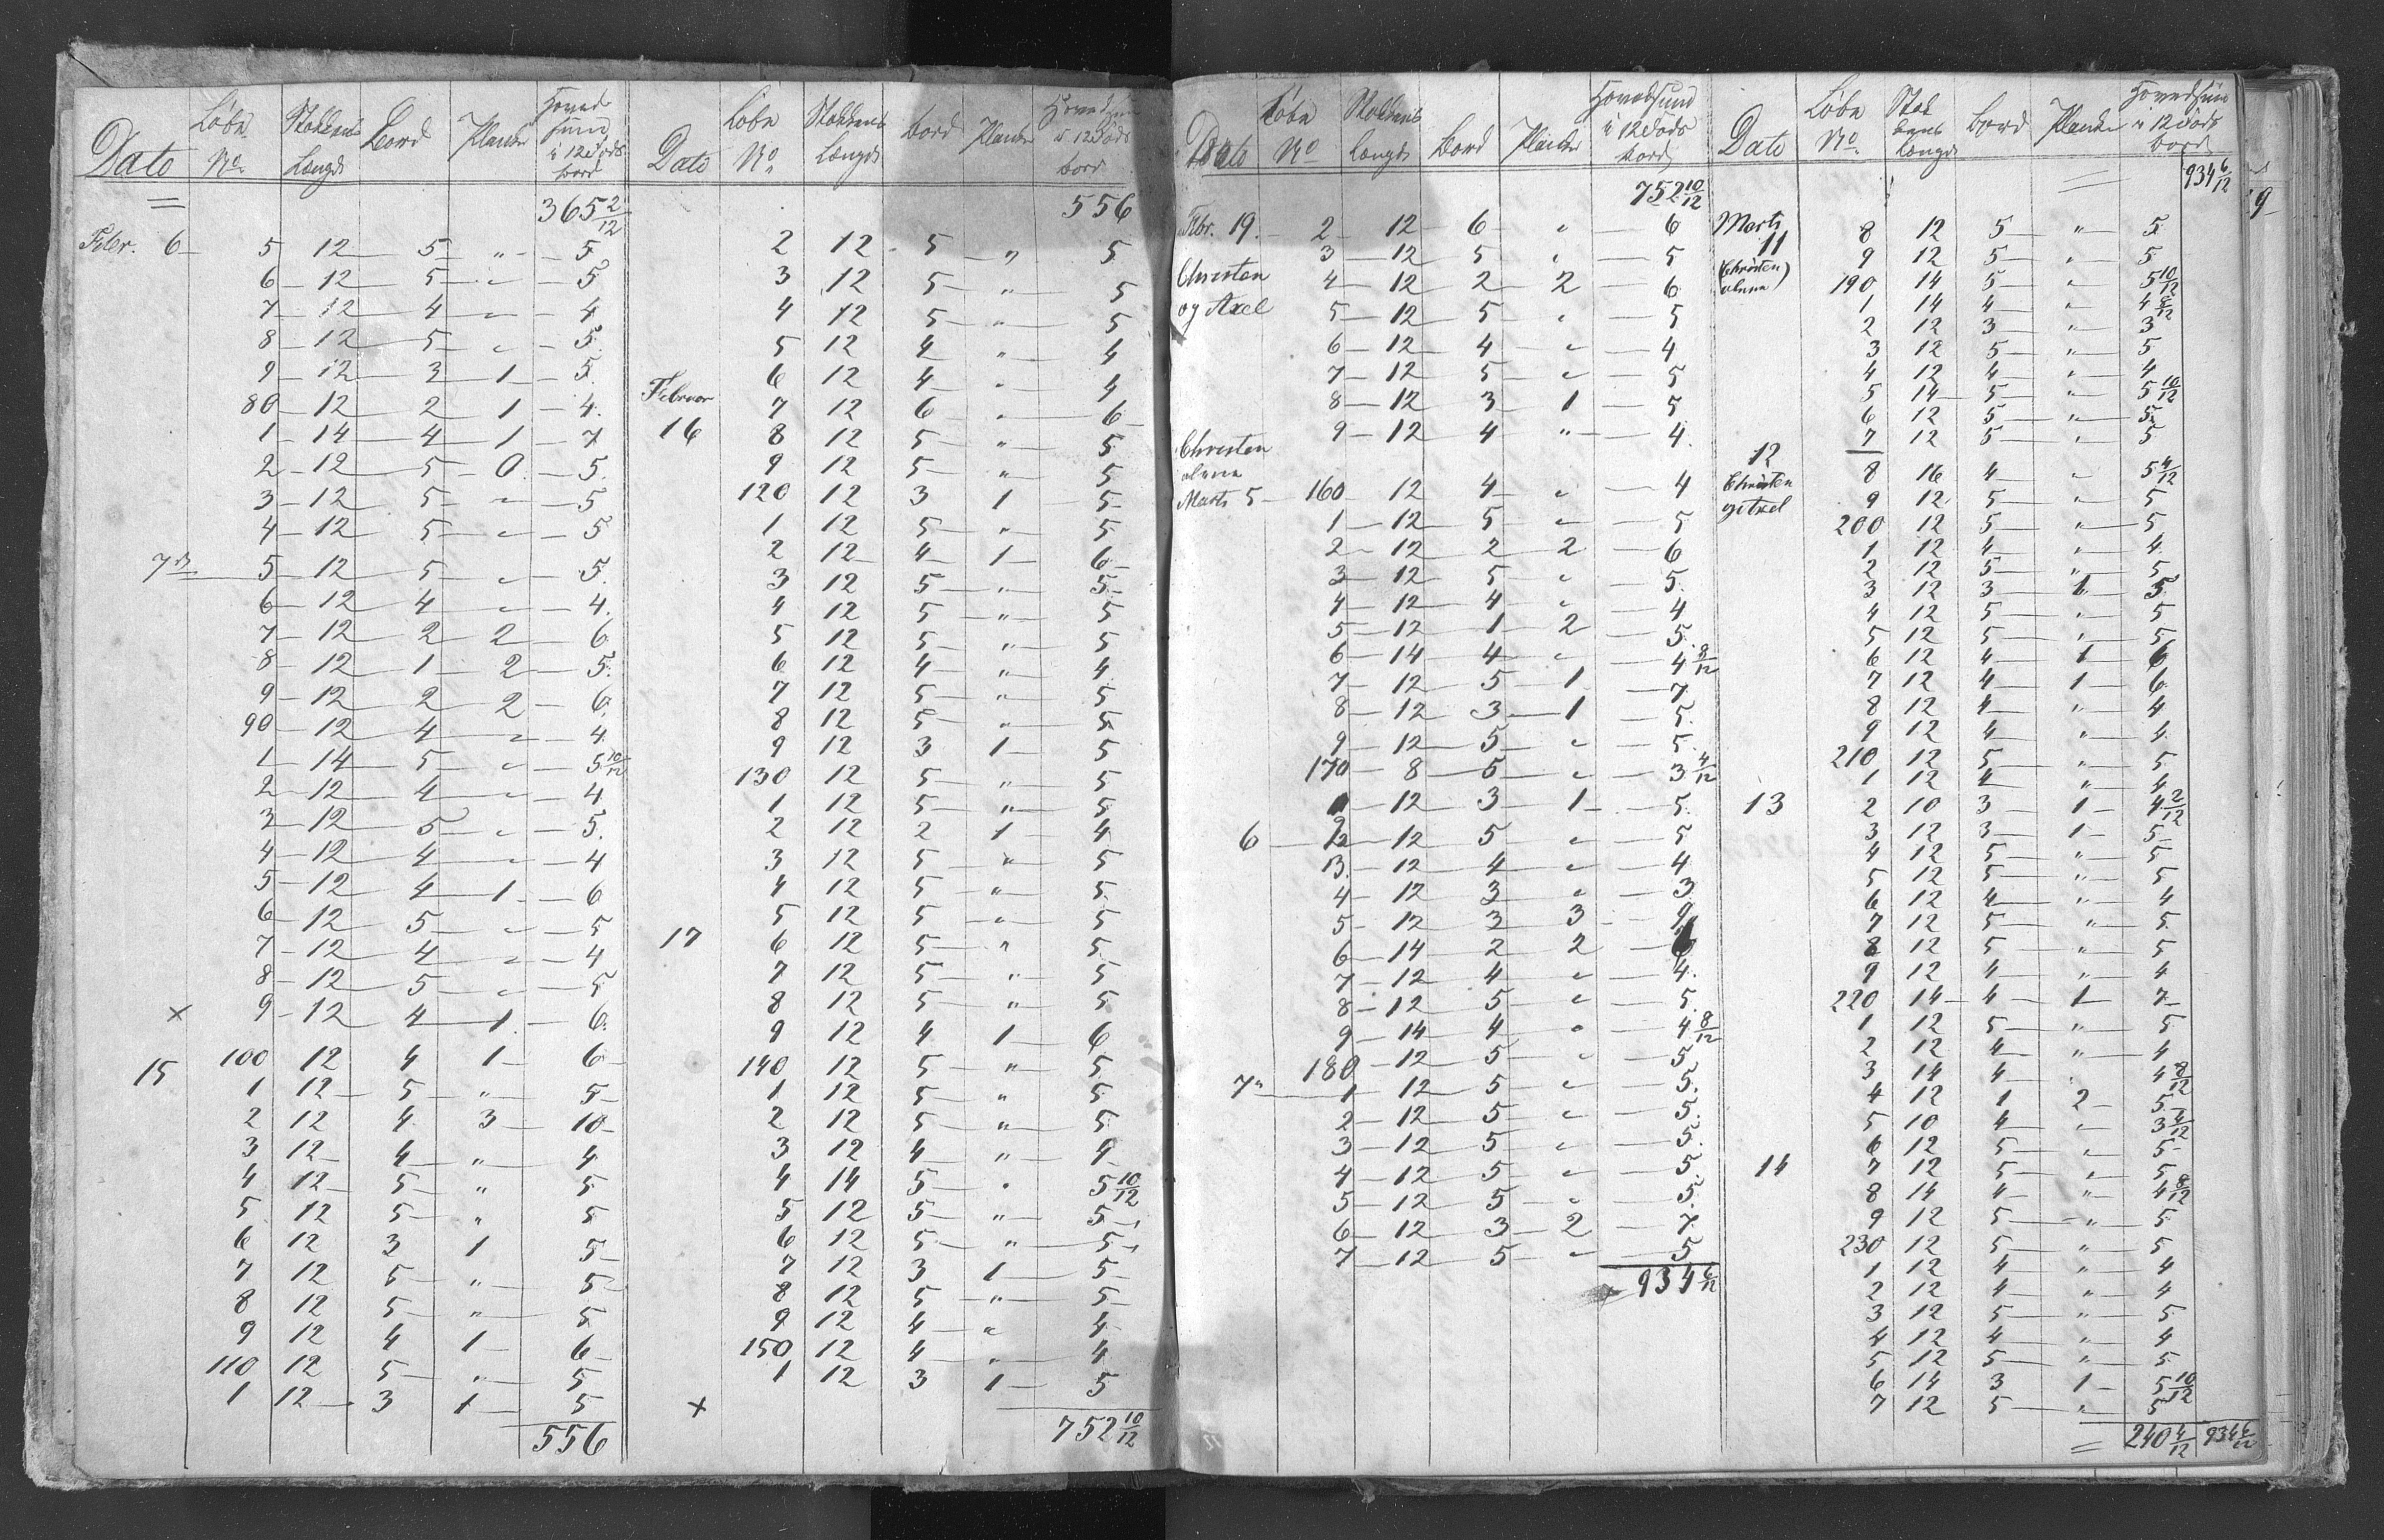 Dato Løbe No. Stokkens Længde Bord Planker Hovedsum à 12 Fods bord
365 2/12
Febr. 6 5 12 5 " 5
6 12 5 " 5
7 12 4 " 4
8 12 5 " 5
9 12 3 1 5
80 12 2 1 4
1 14 4 1 7
2 12 5 0 5
3 12 5 " 5
4 12 5 " 5
7de 5 12 5 " 5
6 12 4 " 4
7 12 2 2 6
8 12 1 2 5
9 12 2 2 6
90 12 4 " 4
1 14 5 " 5 10/12
2 12 4 " 4
3 12 5 " 5
4 12 4 " 4
5 12 4 1 6
6 12 5 " 5
7 12 4 " 4
8 12 5 " 5
x 9 12 4 1 6
15 100 12 4 1 6
1 12 5 " 5
2 12 4 3 10
3 12 4 " 4
4 12 5 " 5
5 12 5 " 5
6 12 3 1 5
7 12 5 " 5
8 12 5 " 5
9 12 4 1 6
110 12 5 " 5
1 12 3 1 5
556
Dato Løbe No. Stokkens Længde Bord Planker Hovedsum à 12 Fods bord
556
2 12 5 " 5
3 12 5 " 5
4 12 5 " 5
5 12 4 " 4
6 12 4 " 4
Februar 7 12 6 " 6
16 8 12 5 " 5
9 12 5 " 5
120 12 3 1 5
1 12 5 " 5
2 12 4 1 6
3 12 5 " 5
4 12 5 " 5
5 12 5 " 5
6 12 4 " 4
7 12 5 " 5
8 12 5 " 5
9 12 3 1 5
130 12 5 " 5
1 12 5 " 5
2 12 2 1 4
3 12 5 " 5
4 12 5 " 5
5 12 5 " 5
17 6 12 5 " 5
7 12 5 " 5
8 12 5 " 5
9 12 4 1 6
140 12 5 " 5
1 12 5 " 5
2 12 5 " 5
3 12 4 " 4
4 14 5 " 5 10/12
5 12 5 " 5
6 12 5 " 5
7 12 3 1 5
8 12 5 " 5
9 12 4 " 4
150 12 4 " 4
1 12 3 1 5
x
752 10/12
Dato Løbe No Stokkens længde Bord Planker Hovedsum à 12 Fods bord
752 10/12
Febr. 19. 2 12 6 " 6
3 12 5 " 5
Christen 4 12 2 2 6
og Axel 5 12 5 " 5
6 12 4 " 4
7 12 5 " 5
8 12 3 1 5
9 12 4 " 4
Christen
alene
Marts 5 160 12 4 " 4
1 12 5 " 5
2 12 2 2 6
3 12 5 " 5
4 12 4 " 4
5 12 1 2 5
6 14 4 " 4 8/12
7 12 5 1 7
8 12 3 1 5
9 12 5 " 5
170 8 5 " 3 4/12
1 12 3 1 5
6 2 12 5 " 5
3 12 4 " 4
4 12 3 " 3
5 12 3 3 9
6 14 2 2
7 12 4 " 4
8 12 5 " 5
9 14 4 " 4 8/12
180 12 5 " 5
7" 1 12 5 " 5
2 12 5 " 5
3 12 5 " 5
4 12 5 " 5
5 12 5 " 5
6 12 3 2 7
7 12 5 " 5
934 6/12
Dato Løbe No. Stokkens længde Bord Planker Hovedsum à 12 Fods bord
934 6/12
Marts 8 12 5 " 5
11 9 12 5 " 5
(Christen alene) 190 14 5 " 5 10/12
1 14 4 " 4 8/12
2 12 3 " 3
3 12 5 " 5
4 12 4 " 4
5 14 5 " 5 10/12
6 12 5 " 5
7 12 5 " 5
12 8 16 4 " 5 4/12
Christen 9 12 5 " 5
og Axel 200 12 5 " 5
1 12 4 " 4
2 12 5 " 5
3 12 3 1 5
4 12 5 " 5
5 12 5 " 5
6 12 4 1 6
7 12 4 1 6
8 12 4 " 4
9 12 4 " 4
210 12 5 " 5
1 12 4 " 4
13 2 10 3 1 4 2/12
3 12 3 1 5
4 12 5 " 5
5 12 5 " 5
6 12 4 " 4
7 12 5 " 5
8 12 5 " 5
9 12 4 " 4
220 14 4 1 7
1 12 5 " 5
2 12 4 " 4
3 14 4 " 4 8/12
4 12 1 2 5
5 10 4 " 3 4/12
6 12 5 " 5
14 7 12 5 " 5
8 14 4 " 4 8/12
9 12 5 " 5
230 12 5 " 5
1 12 4 " 4
2 12 4 " 4
3 12 5 " 5
4 12 4 " 4
5 12 5 " 5
6 14 3 1 5 10/12
7 12 5 " 5
240 4/12 934 6/12